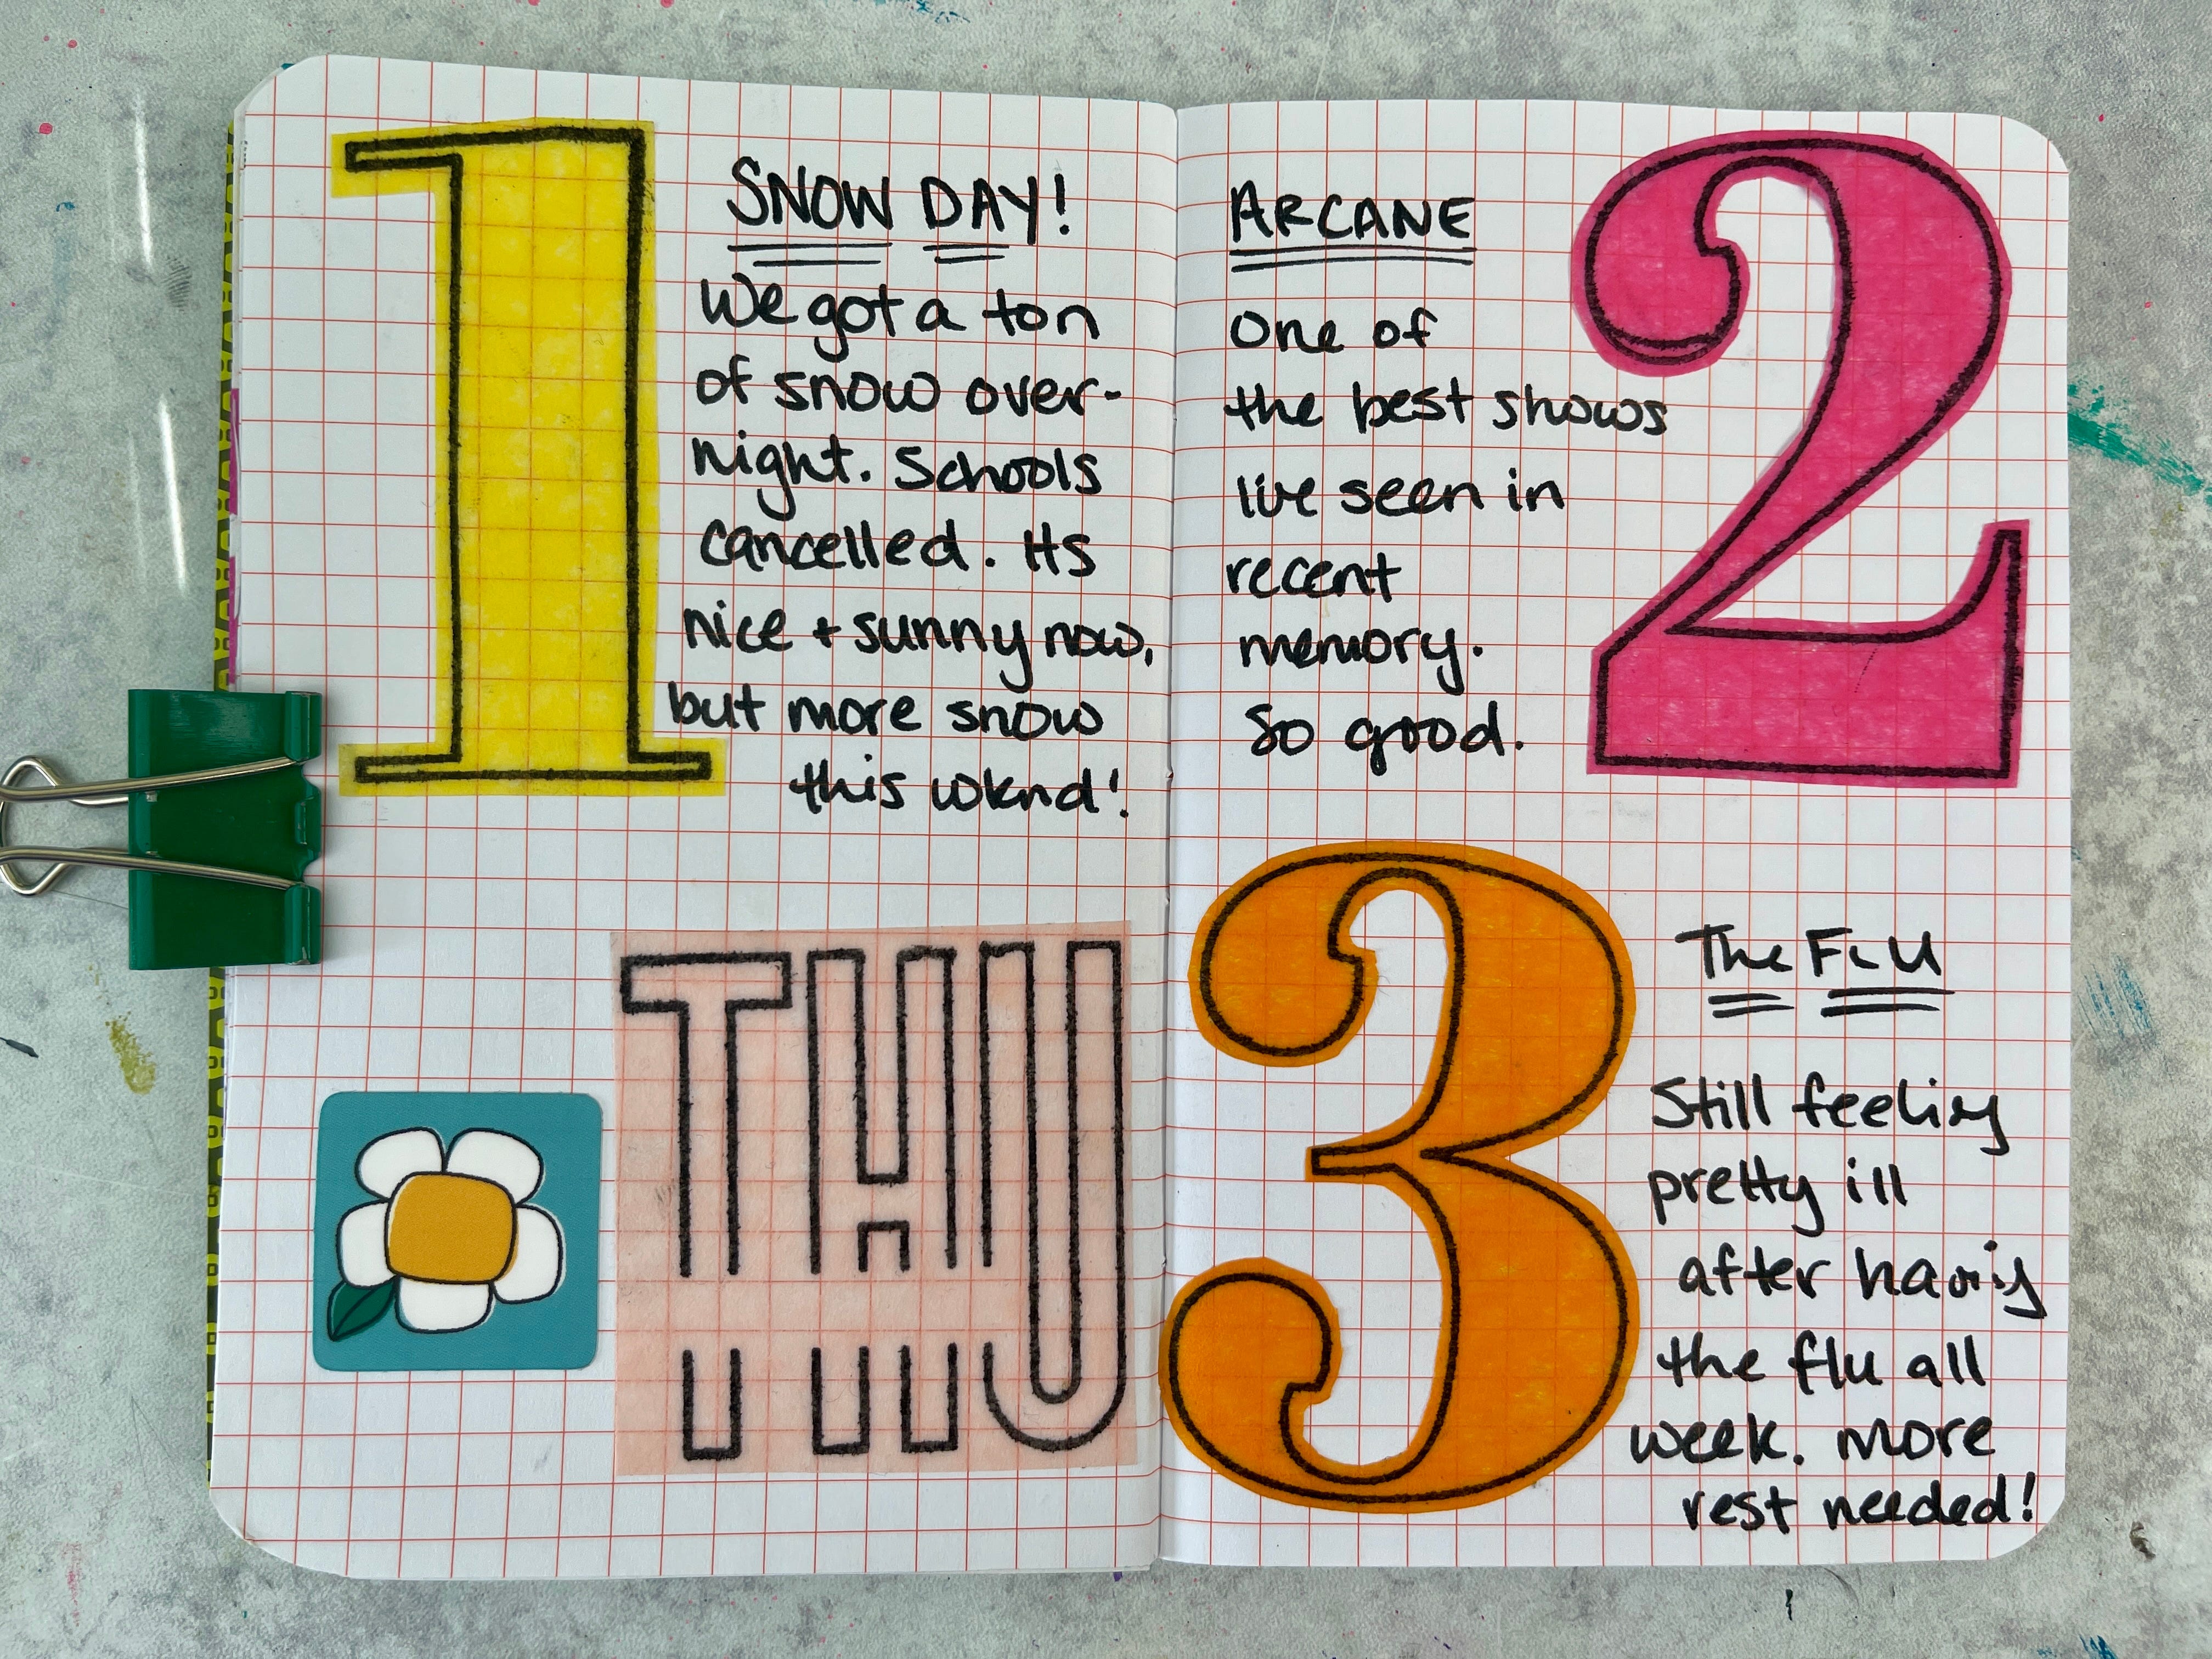 1
SNOW DAY!
We got a ton
of snow over-
night. Schools
cancelled. Its
nice + sunny now,
but more snow
this wknd!
THU
2
ARCANE
One of
the best shows
I've seen in
recent
memory.
So good.
3
The FLU
Still feeling
pretty ill
after having
the flu all
week. More
rest needed!